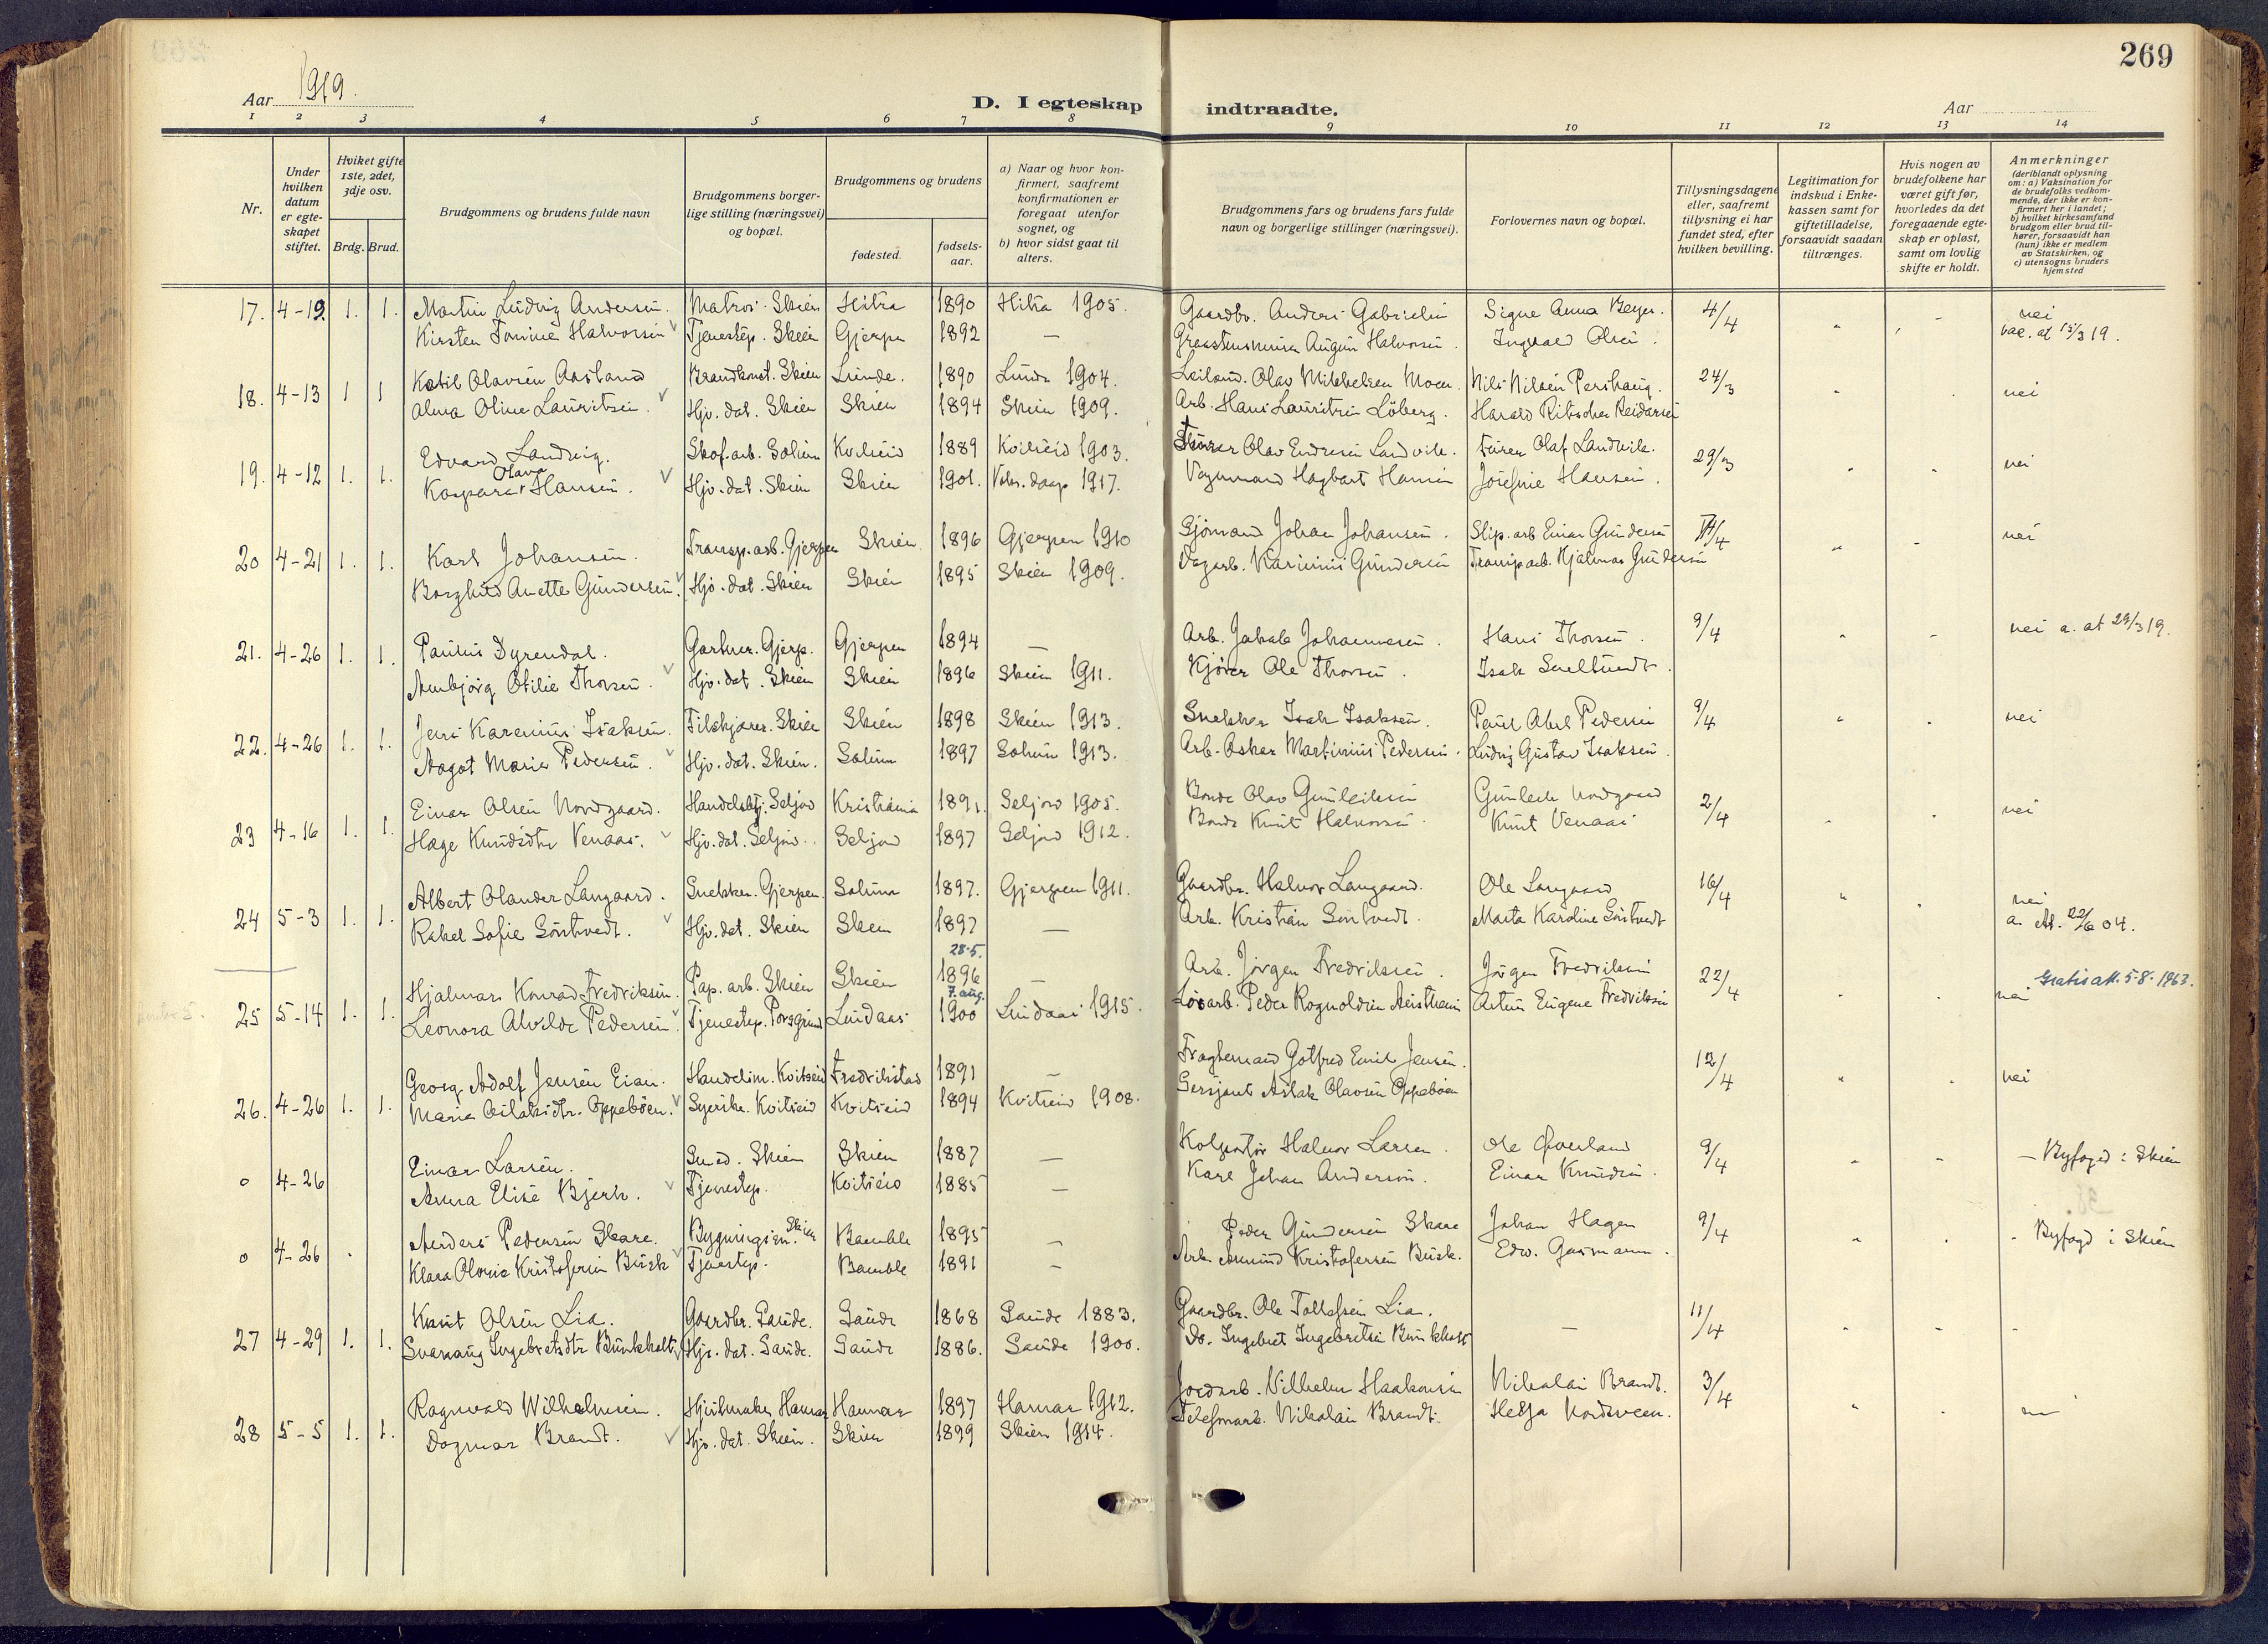 269
Aar 1919.
D. I egteskap indtraadte.
Aar
1 2 3 4 5 6 7 8 9 10 11 12 13 14
Nr.
Under hvilken datum er egte-skapet stiftet.
Hviket gifte 1ste, 2det, 3dje osv.
Brdg. Brud.
Brudgommens og brudens fulde navn
Brudgommens borger-lige stilling (næringsvei) og bopæl.
Brudgommens og brudens
fødested.
fødsels-aar.
a) Naar og hvor kon-firmert, saafremt konfirmationen er foregaat utenfor sognet, og
b) hvor sidst gaat til alters.
Brudgommens fars og brudens fars fulde navn og borgerlige stillinger (næringsvei).
Forlovernes navn og bopæl.
Tillysningsdagene eller, saafremt tillysning ei har fundet sted, efter hvilken bevilling.
Legitimation for indskud i Enke-kassen samt for giftetilladelse, forsaavidt saadan tiltrænges.
Hvis nogen av brudefolkene har været gift før, hvorledes da det foregaaende egte-skap er opløst, samt om lovlig skifte er holdt.
Anmerkninger (deriblandt oplysning om: a) Vaksination for de brudefolks vedkom-mende, der ikke er kon-firmert her i landet; b) hvilket kirkesamfund brudgom eller brud til-hører, forsaavidt han (hun) ikke er medlem av Statskirken, og c) utensogns bruders hjemsted
17. 4-19. 1. 1. Martin Ludvig Andersen. Matros. Skien Hitra 1890 Hitra 1905. Gaardbr. Anders Gabrielsen Signe Anna Beyer. 4/4 nei
Kirsten Tomine Halvorsen Tjenestep. Skien Gjerpen 1892 — August Halvorsen. Ingvald Olsen. vac. at 15/3 19.
18. 4-13 1 1 Ketil Olavsen Aasland Brandkonst. Skien Lunde. 1890 Lunde 1904. Leiland. Olav Mikkelsen Moen. Nils Nilsen Pershaug. 24/3 nei
Alma Oline Lauritsen. Hjv. dat. Skien Skien 1894 Skien 1909. Arb. Hans Lauritsen Löberg. Harald Ritscher Reidarsen
19. 4-12 1. 1. Edvard Landvig. Skof. arb. Solum Kviteseid 1889 Kviteseid 1903. Olav Endresen Landvik. Olaf Landvik. 29/3 nei
Kaspara Olava Hansen. Hjv. dat. Skien Skien 1901. Voks. daap 1917. Vognmand Hagbart Hansen Josefine Hansen.
20 4-21 1. 1. Karl Johansen. Transp. arb. Gjerpen Skien 1896 Gjerpen 1910 Sjömand Johan Johansen. Slip. arb Einar Gundersen /4 nei
Borghild Anette Gundersen. Hjv. dat. Skien Skien 1895 Skien 1909. Karinius Gundersen Transp. arb. Hjalmar Gundersen
21. 4-26 1. 1. Paulus Dyrendal. Gartner. Gjerp. Gjerpen 1894 — Arb. Jakob Johannesen. Hans Thorsen. 9/4 nei a. at 29/3 19.
Aunbjörg Otilie Thorsen. Hjv. dat. Skien Skien 1896 Skien 1911. Kjörer Ole Thorsen. Isak
22. 4-26 1. 1. Jens Karenius Isaksen. Filskjærer. Skien Skien 1898 Skien 1913. Snekker Isak Isaksen. Paul Abel Pedersen 9/4 nei
Aagot Marie Pedersen. Hjv. dat. Skien. Solum 1897 Solum 1913. Arb. Oskar Martinius Pedersen. Ludvig Gustav Isaksen.
23 4-16 1. 1. Einar Olsen Nordgaard. Handelsbtj. Seljord Kristiania 1891. Seljord 1905. Bonde Olav Gunleiksen Gunleik Nordgaard 2/4 nei
Hæge Knudsdtr Venaas. Hjv. dat. Seljord. Seljord 1897 Seljord 1912. Bonde Knut Halvorsen. Knut Venaas
24 5-3 1. 1. Albert Olander Langaard. Snekker. Gjerpen. Solum 1897. Gjerpen 1911. Gaardbr. Halvor Langaard. Ole Langaard 16/4 nei
Rakel Sofie Sörtvedt. Hjv. dat. Skien Skien 1897 — Arb. Kristian Sörtvedt. Marta Karoline Sörtvedt a. At. 22/6 04.
25 5-14 1. 1. Hjalmar Konrad Fredriksen. Pap. arb. Skien Skien 28.5. 1896 — Arb. Jörgen Fredriksen. Jörgen Fredriksen 22/4 nei Gratis att. 5-8-1963.
Leonora Alvilde Pedersen Tjenestep. Porsgrund Lindaas 7. aug. 1900 Lindaas 1915. Lösarb. Peder Rognaldsen Artur Eugene Fredriksen
26. 4-26 1. 1. Georg Adolf Jensen Eian. Handelsm. Kviteseid Fredrikstad 1891 — Fragtemand Gotfred Emil Jensen. 12/4 nei
Maria Aslaksdtr. Oppebøen. Syerske. Kviteseid Kviteseid 1894 Kviteseid 1908. Sersjant Aslak Olavsen Oppebøen
0 4-26 Einar Larsen. Smed. Skien Skien 1887 — Kolportør Halvor Larsen. Ole Øverland 9/4 — Byfoged i Skien
Anna Elise Bjerk. Tjenestep. Kviteseid 1885 — Karl Johan Anderson. Einar Knudsen.
0 4-26 Anders Pedersen Skare. Skien Bamble 1895 — Peder Gundersen Skare Johan Hagen 9/4 - Byfogd i Skien
Klara Olovia Kristofersen Busk Tjenestep. Bamble 1891 — Arb. Amund Kristofersen Busk. Edv. Gasmann.
27 4-29 1. 1. Knut Olsen Lia. Gaardbr. Saude. Saude 1868 Saude 1883. Gaardbr. Ole Tollefsen Lia. — 11/4 -
Svanaug Ingebretsdtr Bunkholt Hjv. dat. Saude. Saude 1886. Saude 1900. Do. Ingebret Ingebretsen Bunkholt
28 5-5 1. 1. Ragnvald Wilhelmsen. Hjulmaker Hamar Hamar 1897 Hamar 1912. Jordarb. Vilhelm Haakonsen Nikolai Brandt. 3/4
Dagmar Brandt. Hjv. dat. Skien. Skien 1899 Skien 1914. Telefonarb. Nikolai Brandt. Helga Nordsveen.